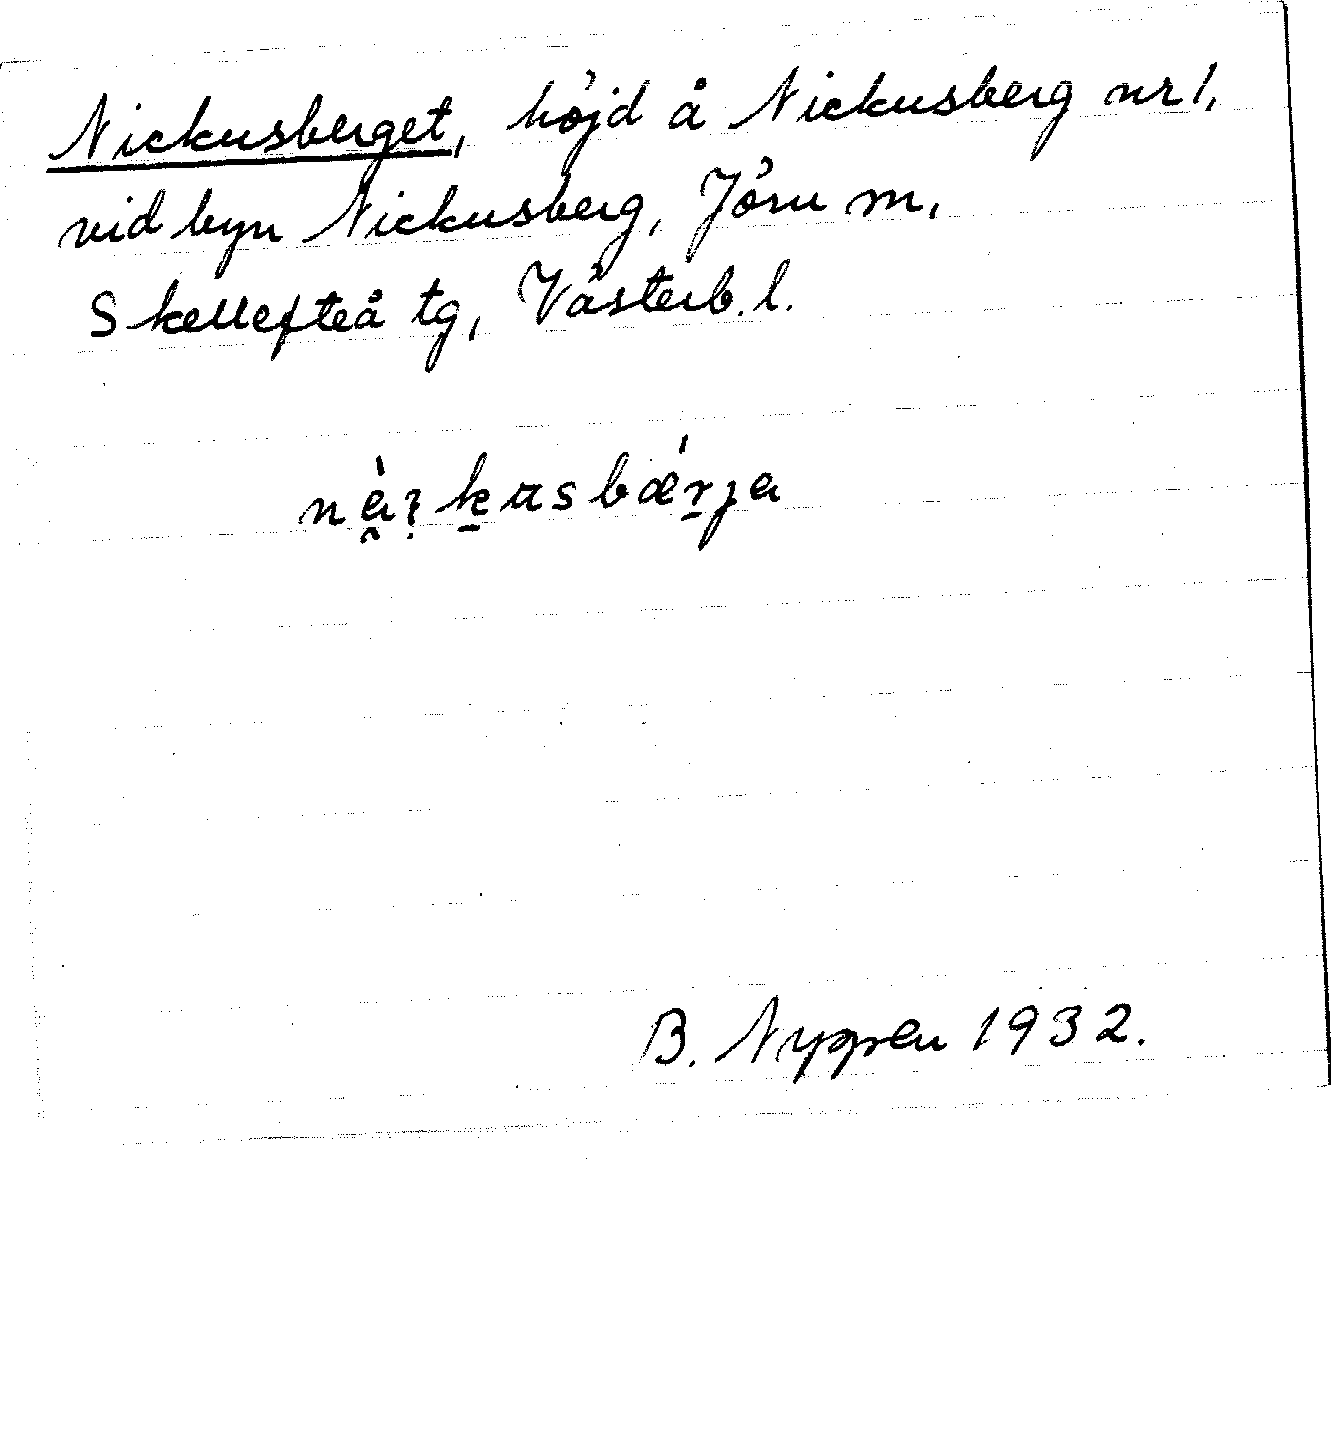 Nickusberget, höjd å Nickusberg nr 1,
vid byn Nickusberg, Jörn m,
Skellefteå tg, Västerb. l.
B. Nyppen 1932.